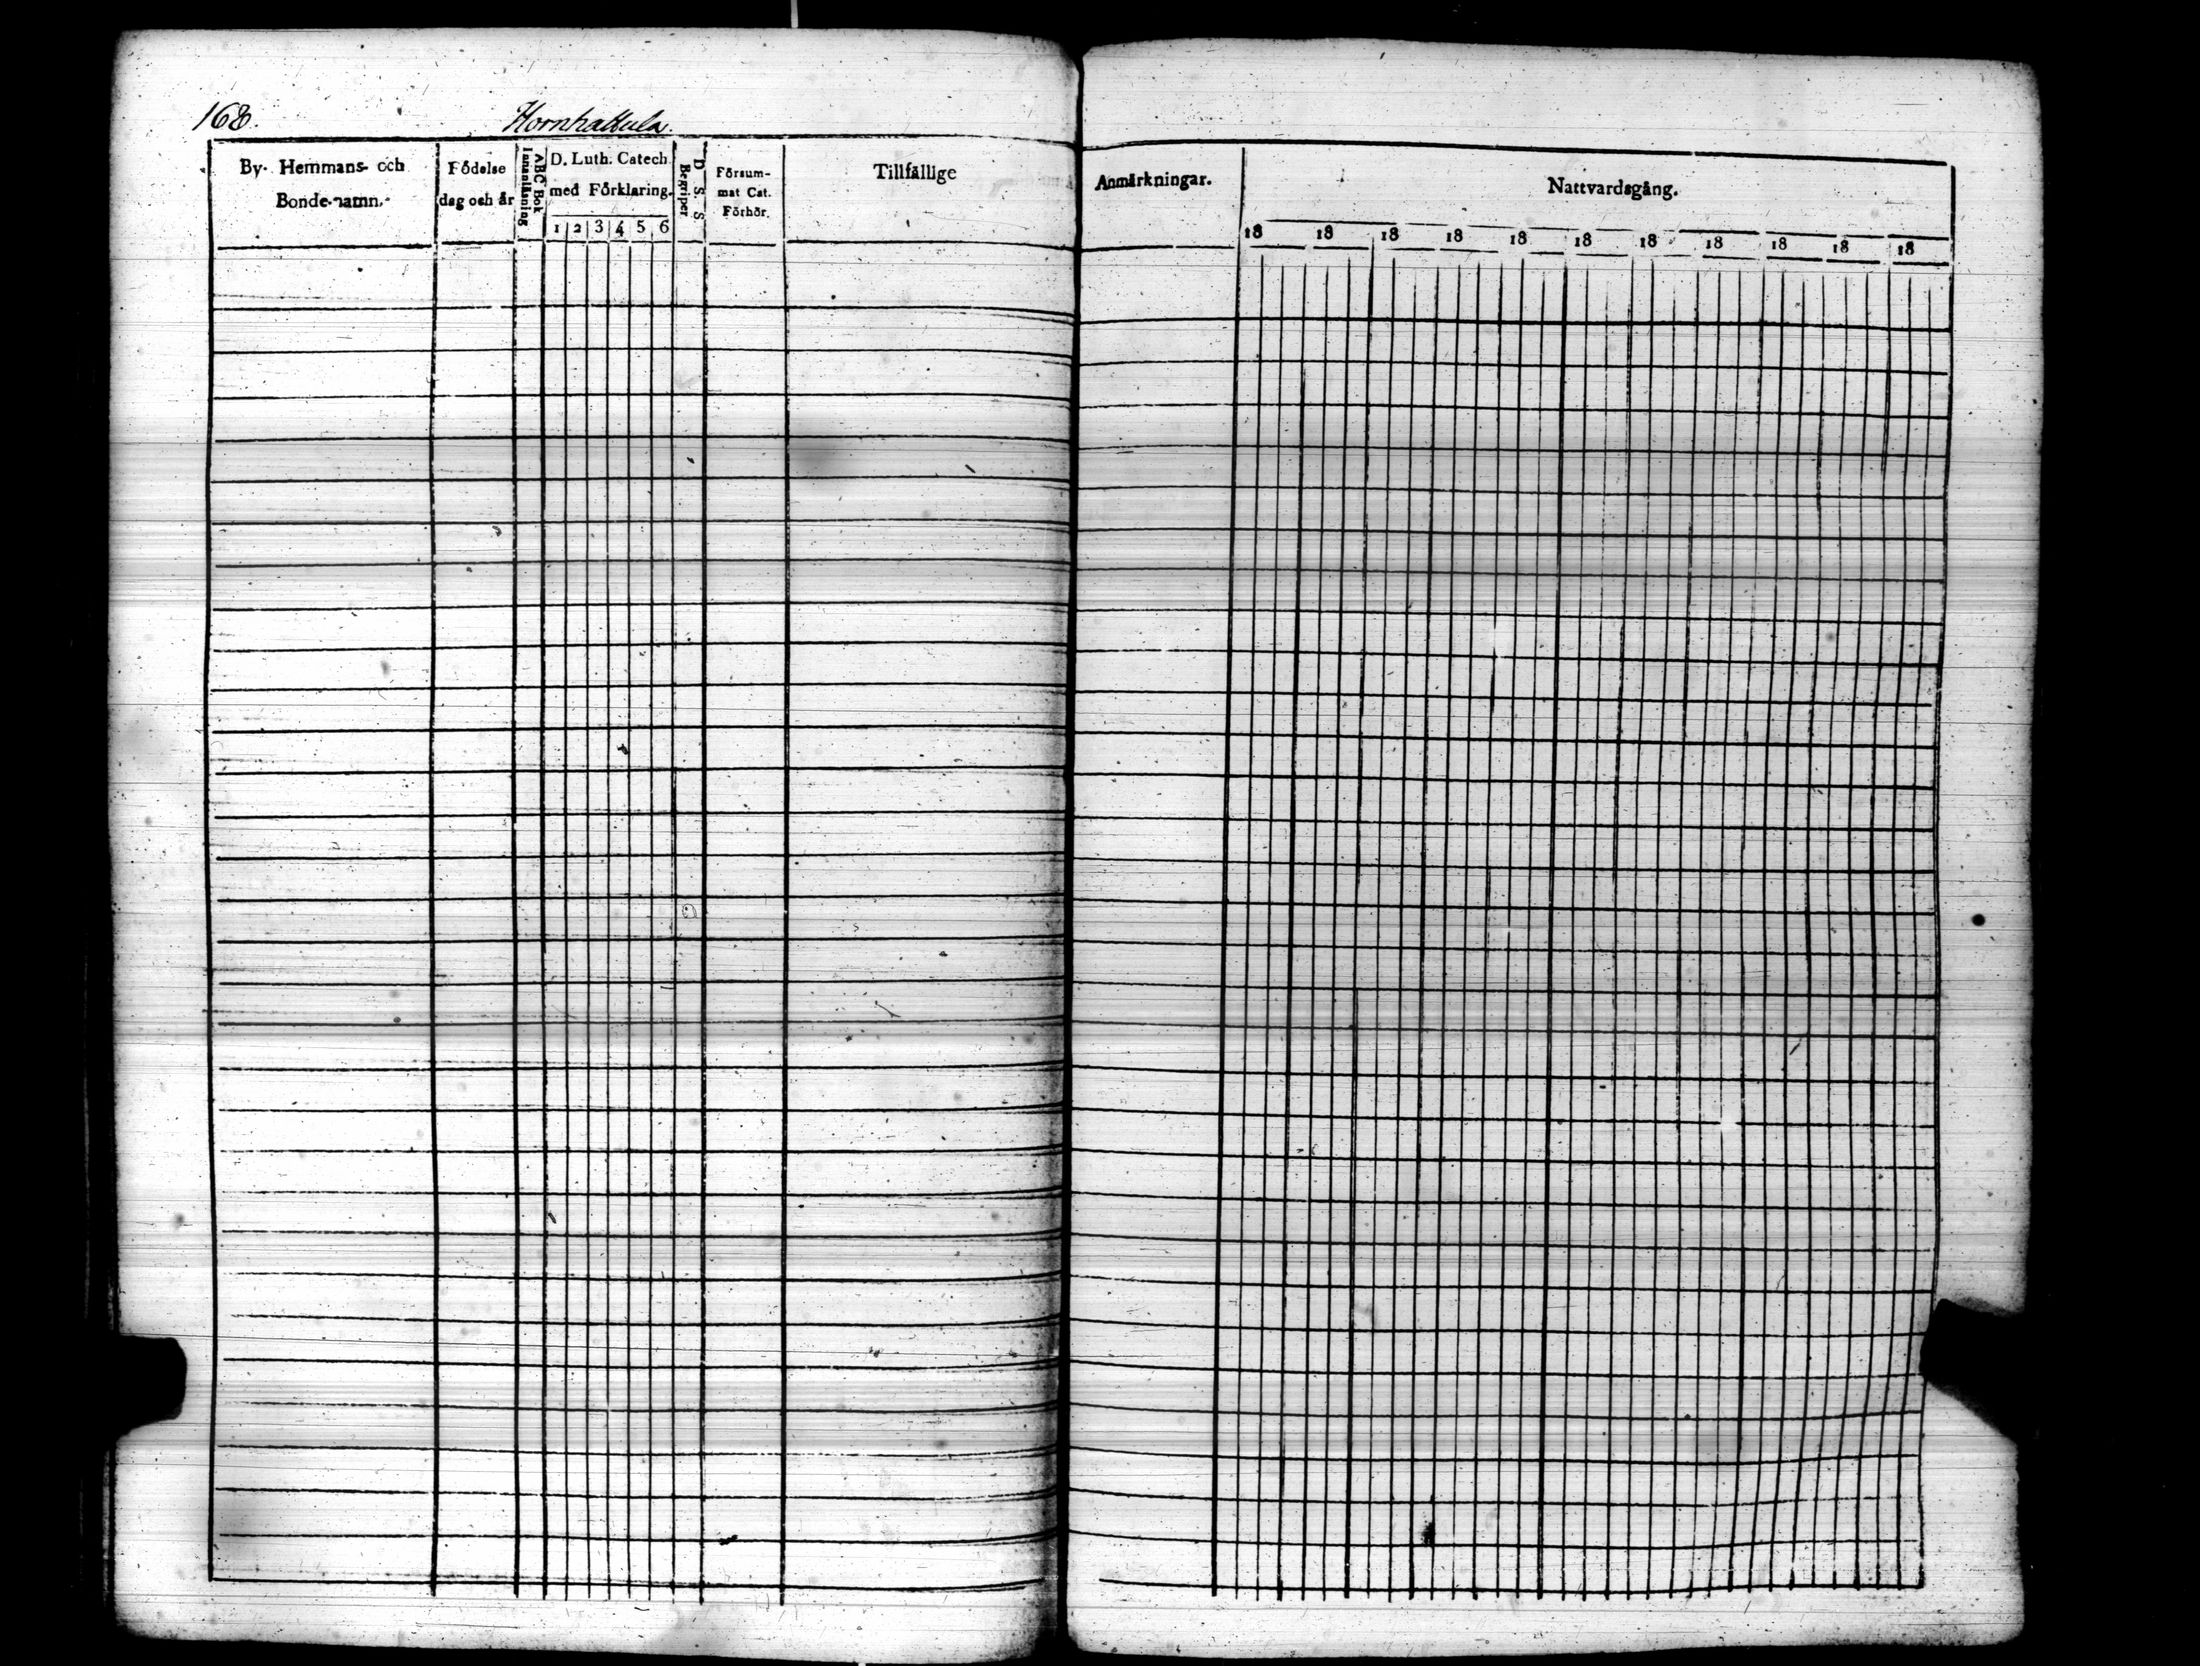 168. Hornhattula.
By- Hemmans- och
Bonde-namn.
Födelse
dag och år
ABC Bok
Innanläsning
D. Luth. Catech.
med Förklaring.
1 2 3 4 5 6
D. S. S
Begriper
Försum-
mat Cat.
Förhör.
Tillfällige
Anmärkningar.
Nattvardsgång.
18 18 18 18 18 18 18 18 18 18 18